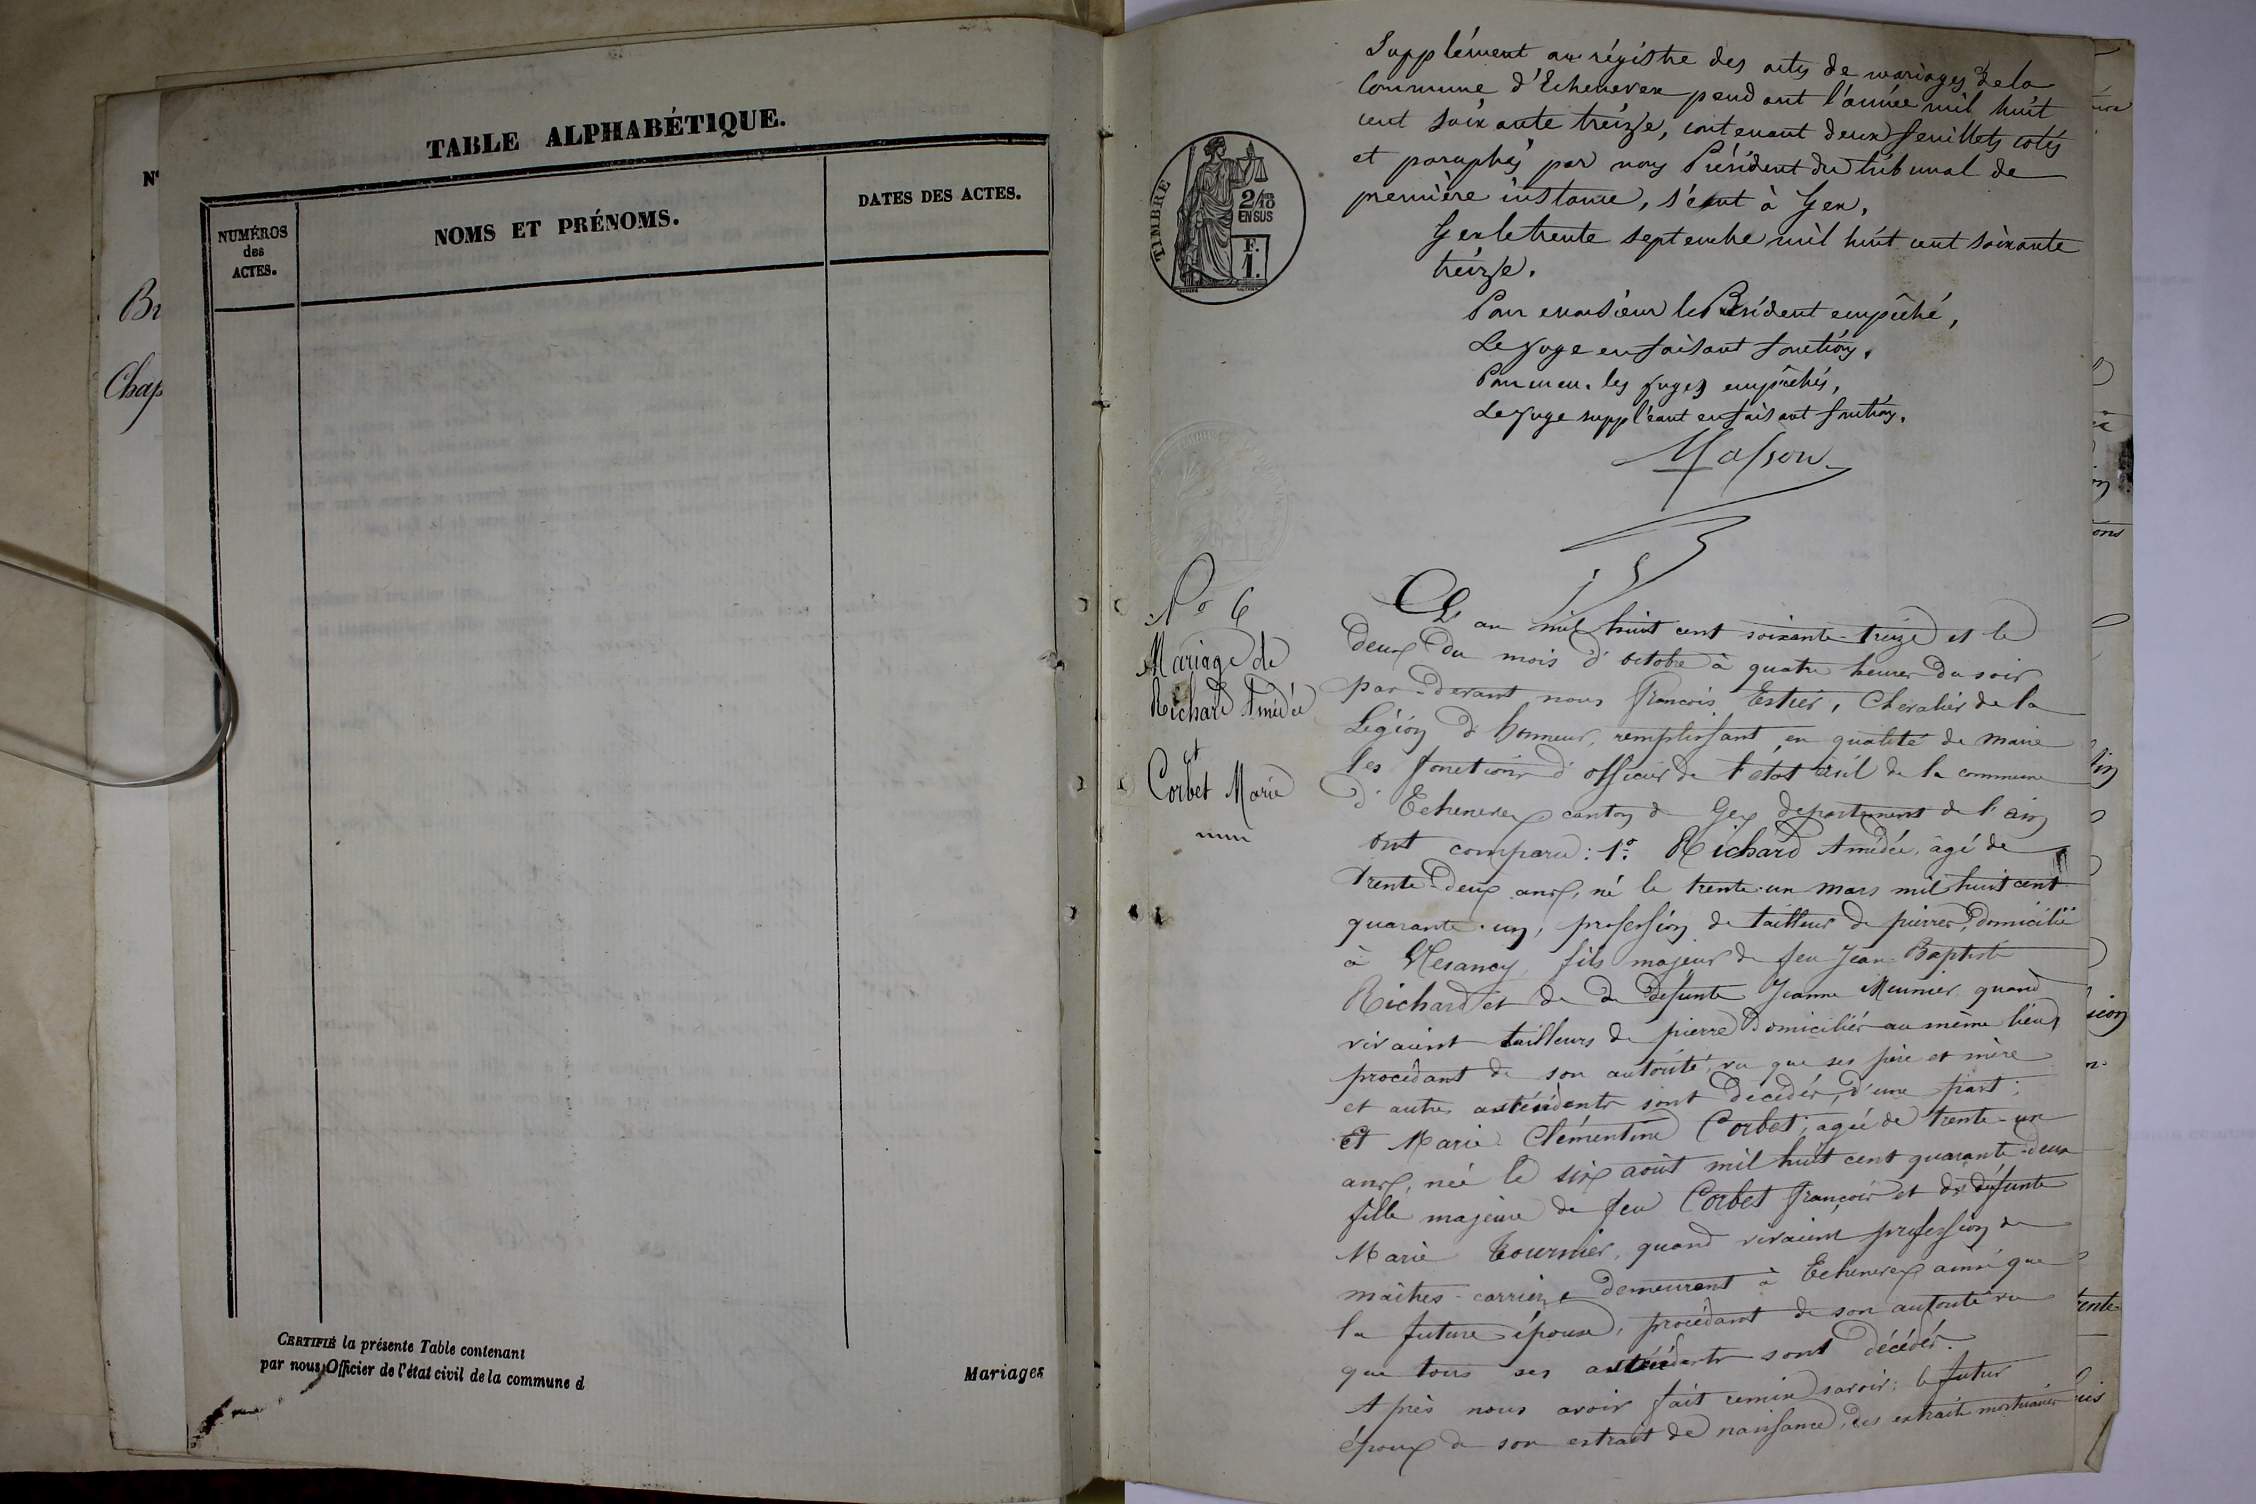 TABLE ALPHABÉTIQUE.
NUMÉROS
des
ACTES.
NOMS ET PRÉNOMS.
DATES DES ACTES.
CERTIFIÉ la présente Table contenant
par nous, Officier de l'état civil de la commune d
Mariages
N°
Br
Chap
TIMBRE
2/10
EN SUS
F.
1.
Supplément au régistre des actes de mariages de la
Commune d'Echenevex pendant l'année mil huit
cent soixante treize, contenant deux feuillets cotés
et paraphés par nous Président du tribunal de
première instance, séant à Gex.
Gex le trente septembre mil huit cent soixante
treize.
Pour monsieur le Président empêché,
Le juge en faisant fonctions,
Pour les juges empêchés,
Le juge suppléant en faisant fonctions.
Masson
No 6
Mariage de
Richard Amédée
et
Corbet Marie
L'an mil huit cent soixante-treize et le
deux du mois d'octobre à quatre heures du soir
par-devant nous François Estier, Chevalier de la
Légion d'honneur, remplissant en qualité de maire
les fonctions d'officier de l'état civil de la commune
d'Echenevex canton de Gex département de l'ain
ont comparu : 1° Richard Amédée, âgé de
trente-deux ans, né le trente-un mars mil huit cent
quarante-un, profession de tailleur de pierres, domicilié
à Vesancy, fils majeur de feu Jean-Baptiste
Richard et de de défunte Jeanne Meunier quand
vivaient tailleurs de pierre domiciliés au même lieu,
procédant de son autorité, vu que ses père et mère
et autres sont décédés, d'une part ;
Et Marie Clémentine Corbet, agée de trente-un
ans, née le six août mil huit cent quarante-deux
fille majeure de feu Corbet François et de défunte
Marie Tournier, quand vivaient profession de
maîtres-carriers demeurant à Echenevex ainsi que
la future épouse, procédant de son autorité vu
que tous ses sont décédés.
Après nous avoir fait remise savoir : le futur
époux de son extrait de naissance, des extraits mortuaires